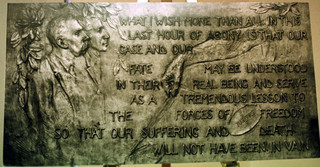 WHAT I WISH MORE THAN ALL IN THIS
LAST HOUR OF AGONY IS THAT OUR
CASE AND OUR
FATE MAY BE UNDERSTOOD
IN THEIR REAL BEING AND SERVE
AS A TREMENDOUS LESSON TO
THE FORCES OF FREEDOM
SO THAT OUR SUFFERING AND DEATH
WILL NOT HAVE BEEN IN VAIN